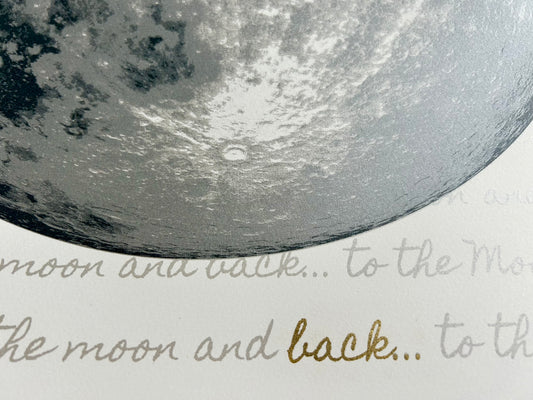 moon and back... to the Moo
the moon and back... to th